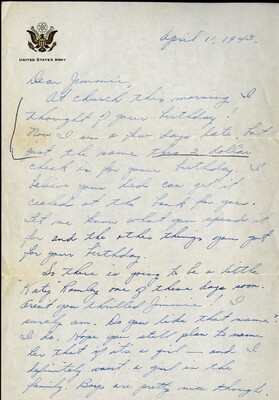 UNITED STATES ARMY
April 11, 1943.
Dear Jimmie,
At church this morning I
thought of your birthday!
Now I am a few days late but
just the same this 2 dollar
check is for your birthday. I
believe your dad can get it
cashed at the bank for you.
Let me know what you spend it
for and the other things you got
for your birthday.
So there is going to be a little
Katy Romley one of these days soon.
Aren't you thrilled Jimmie! I
surely am. Do you like that name?
I do. Hope you still plan to name
her that if it's a girl — and I
definitely want a girl in the
family. Boys are pretty nice though.